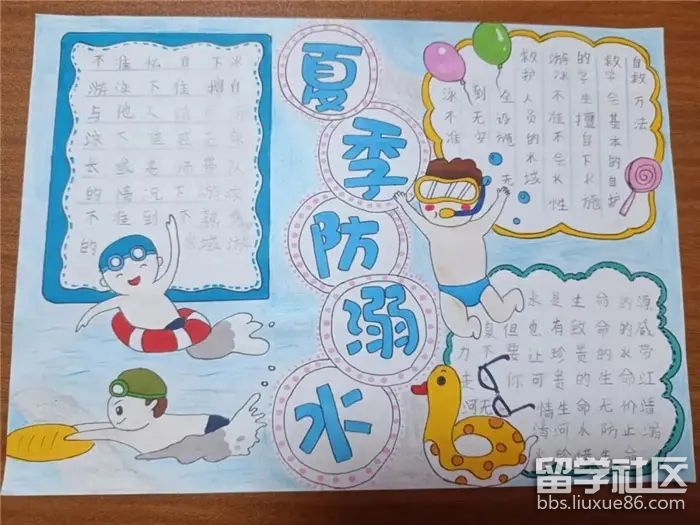 夏季防溺水
不准私自下水
游泳不准擅自
与他人结
泳不准在无家
长或老师带队
的情况下游泳
不准到不熟悉
的 水域游
自救方法
救学会基本的自护
的学生擅自下水施
游泳不准不会水性
救护人员的水域
到无安全设施无
泳不准
水是生命的源
但也有致命的威
力不要让珍贵的水带
走 你可贵的生命江
河无情生命无价请
河水防止溺
水珍惜生命
留学社区
bbs.liuxue86.com